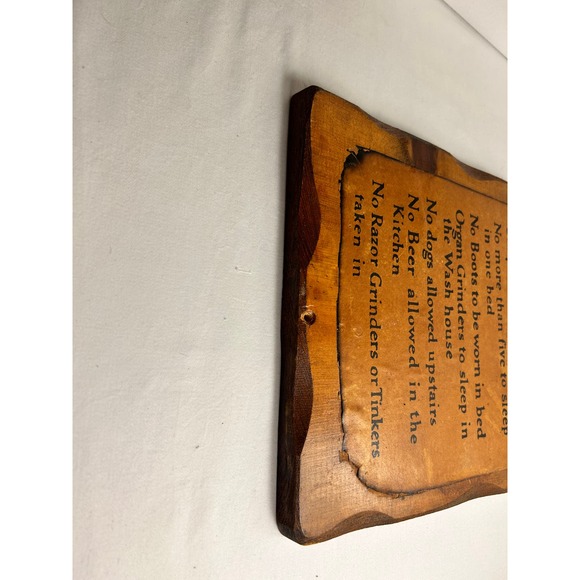 No more than five to sleep
in one bed
No Boots to be worn in bed
Organ Grinders to sleep in
the Wash house
No dogs allowed upstairs
No Beer allowed in the
Kitchen
No Razor Grinders or Tinkers
taken in